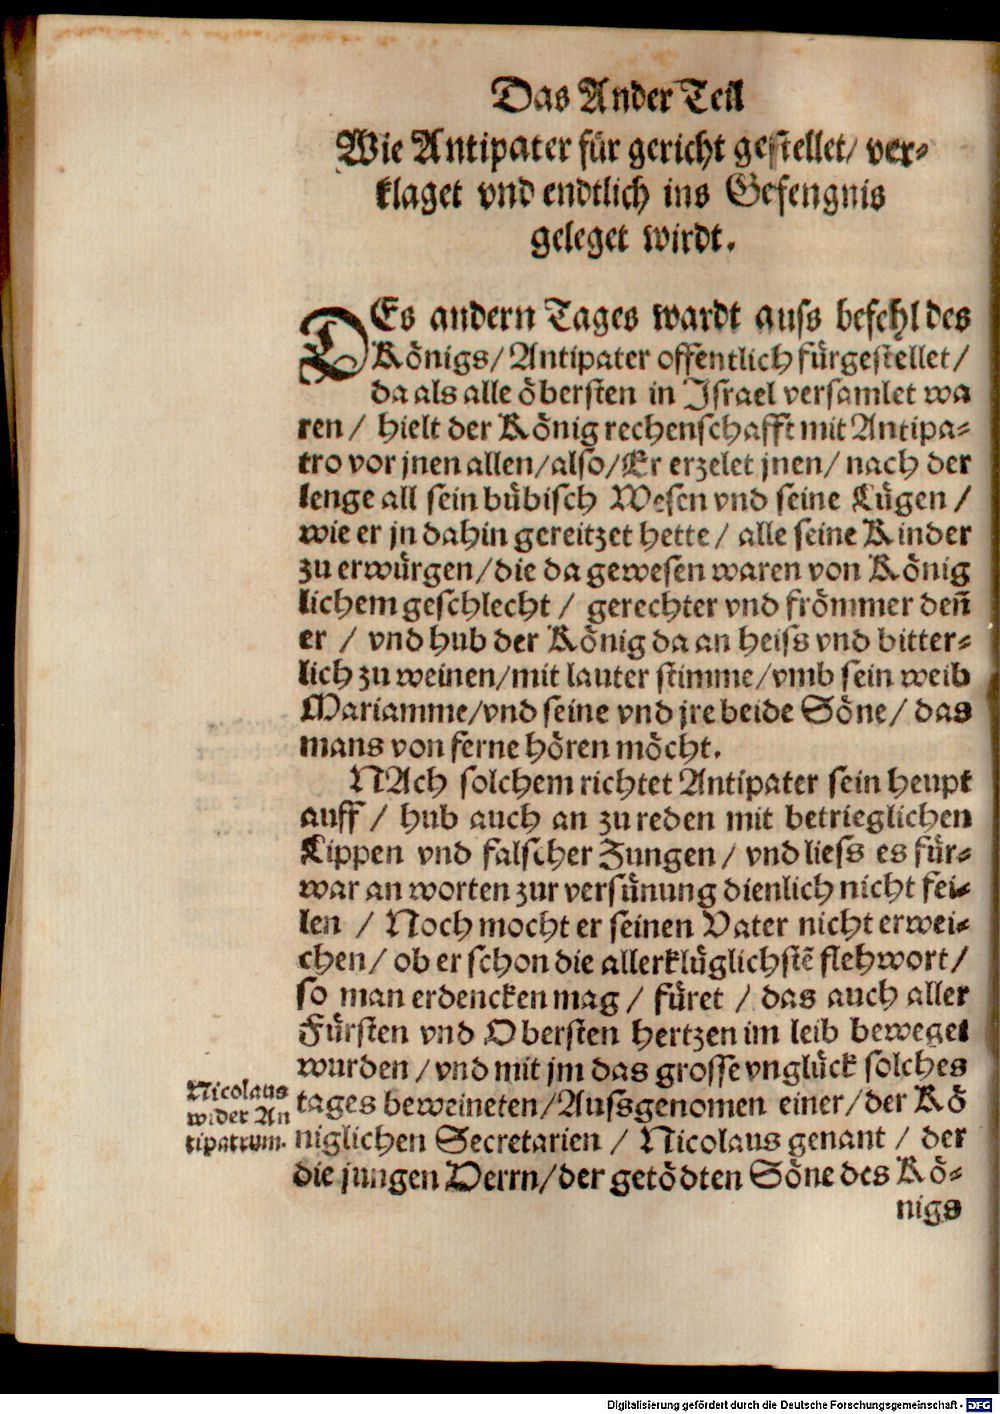 Das Ander Teil
Wie Antipater für gericht gestellet/ ver⸗
klaget vnd endtlich ins Gefengnis
geleget wirdt.
DEs andern Tages wardt auss befehl des
Königs/ Antipater offentlich fürgestellet/
da als alle öbersten in Israel versamlet wa
ren / hielt der König rechenschafft mit Antipa⸗
tro vor jnen allen/also/Er erzelet jnen/ nach der
lenge all sein bübisch Wesen vnd seine Lügen /
wie er jn dahin gereitzet hette / alle seine Kinder
zu erwürgen/die da gewesen waren von König
lichem geschlecht / gerechter vnd frömmer deñ
er / vnd hub der König da an heiss vnd bitter⸗
lich zu weinen/mit lauter stimme/vmb sein weib
Mariamme/vnd seine vnd jre beide Söne/ das
mans von ferne hören möcht.
NAch solchem richtet Antipater sein heupt
auff / hub auch an zu reden mit betrieglichen
Lippen vnd falscher Zungen / vnd liess es für⸗
war an worten zur versünung dienlich nicht fei⸗
len / Noch mocht er seinen Vater nicht erwei⸗
chen/ ob er schon die allerklüglichstẽ flehwort/
so man erdencken mag / füret / das auch aller
Fürsten vnd Obersten hertzen im leib beweget
wurden / vnd mit jm das grosse vnglück solches
tages beweineten/Aussgenomen einer/der Kö
niglichen Secretarien / Nicolaus genant / der
die jungen Herrn/der getödten Söne des Kö⸗
nigs
Nicolaus
wider An
tipatrum.
Digitalisierung gefördert durch die Deutsche Forschungsgemeinschaft - DFG